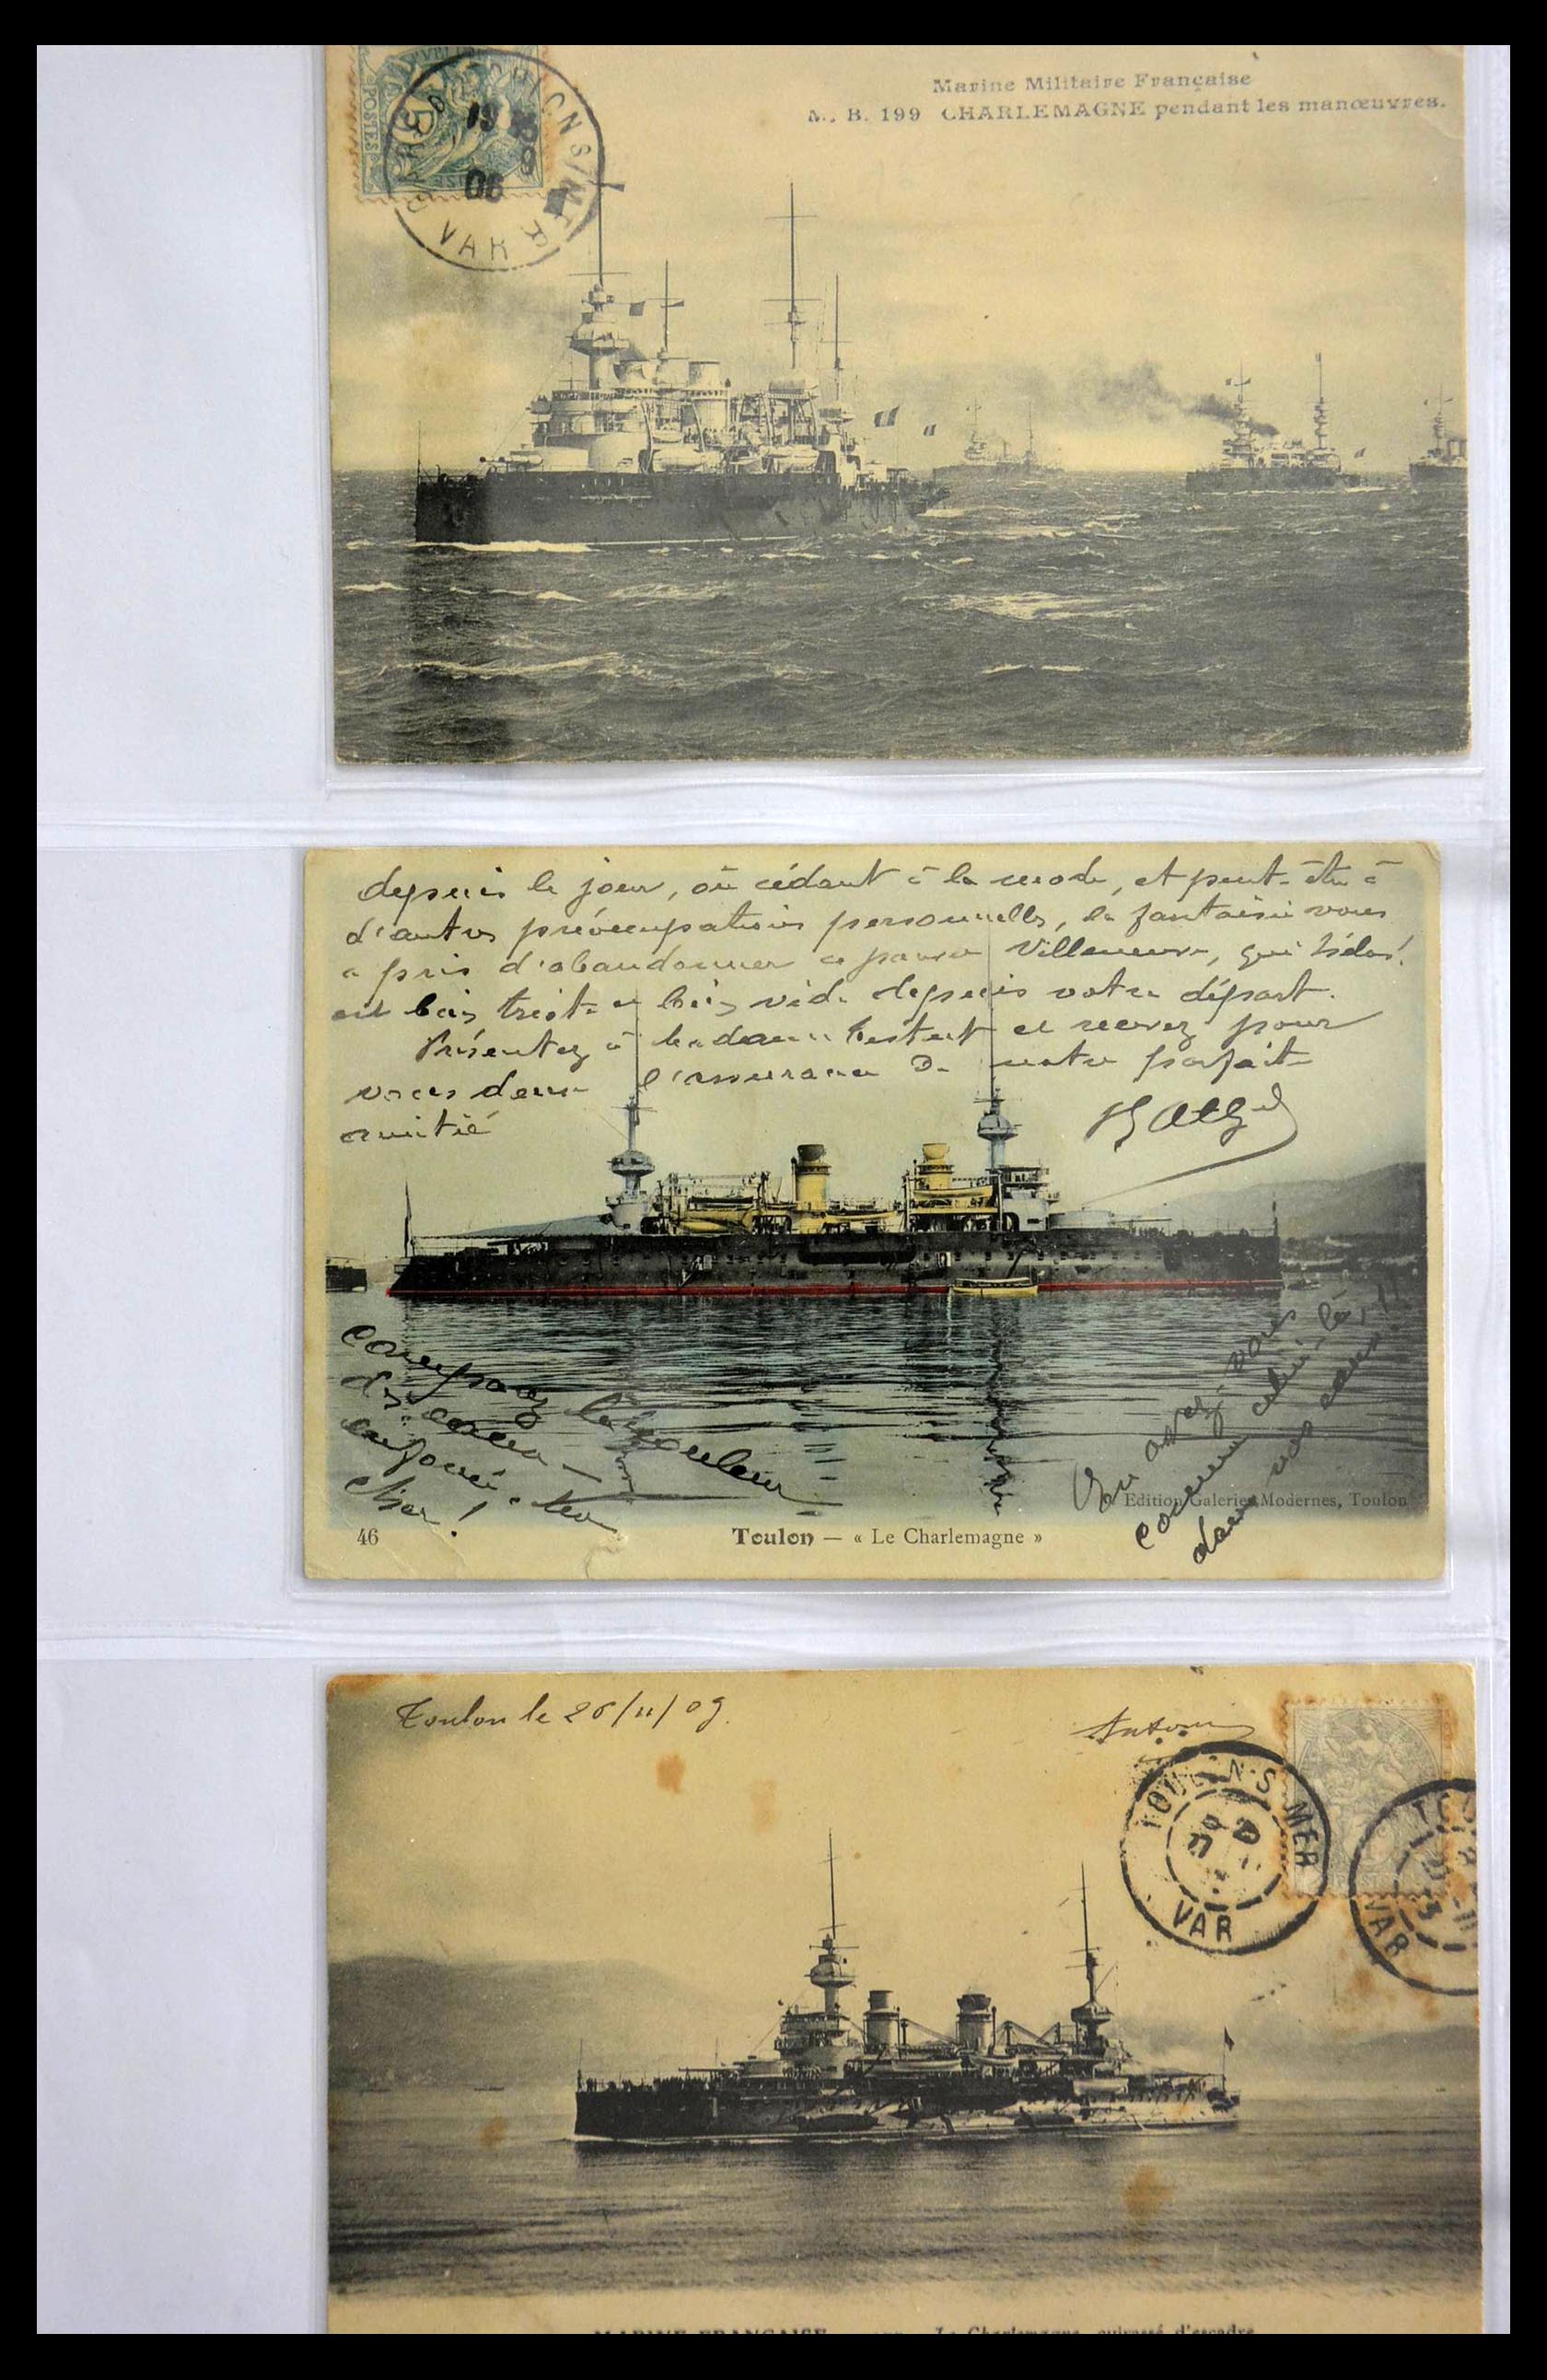 POSTES
19
06
VAR
Marine Militaire Française
M. B. 199 CHARLEMAGNE pendant les manœuvres.
depuis le jour, où cédant à la mode, et peut-être à
d'autres préoccupations personnelles, la fantaisie vous
a pris d'abandonner ce pauvre Villeneuve, qui hélas!
est bien triste et bien vide depuis votre départ.
Présentez à Madame et recevez pour
vous deux l'assurance de notre parfaite
amitié
comparez la couleur
cher!
En avez-vous
comme celui-là,
dans vos eaux
Edition Galeries Modernes, Toulon
46
Toulon — « Le Charlemagne »
Toulon le 26/11/09.
TOULON-S-MER
VAR
VAR
MARINE FRANÇAISE Le Charlemagne, cuirassé d'escadre